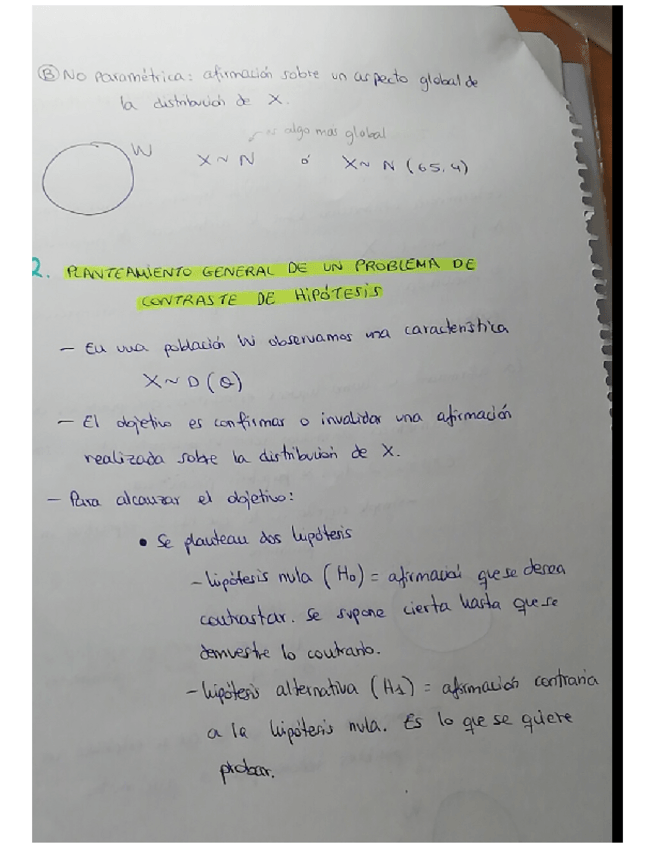 Ⓑ No paramétrica: afirmación sobre un aspecto global de
la distribución de X.
algo mas global
W X~N ó X~N (65,4)
2. PLANTEAMIENTO GENERAL DE UN PROBLEMA DE
CONTRASTE DE HIPÓTESIS
- En una población W observamos una característica
X~D(θ)
- El objetivo es confirmar o invalidar una afirmación
realizada sobre la distribución de X.
- Para alcanzar el objetivo:
• Se plantean dos hipótesis
- hipótesis nula (H₀) = afirmación que se desea
contrastar. Se supone cierta hasta que se
demuestre lo contrario.
- hipótesis alternativa (H₁) = afirmación contraria
a la hipótesis nula. Es lo que se quiere
probar.